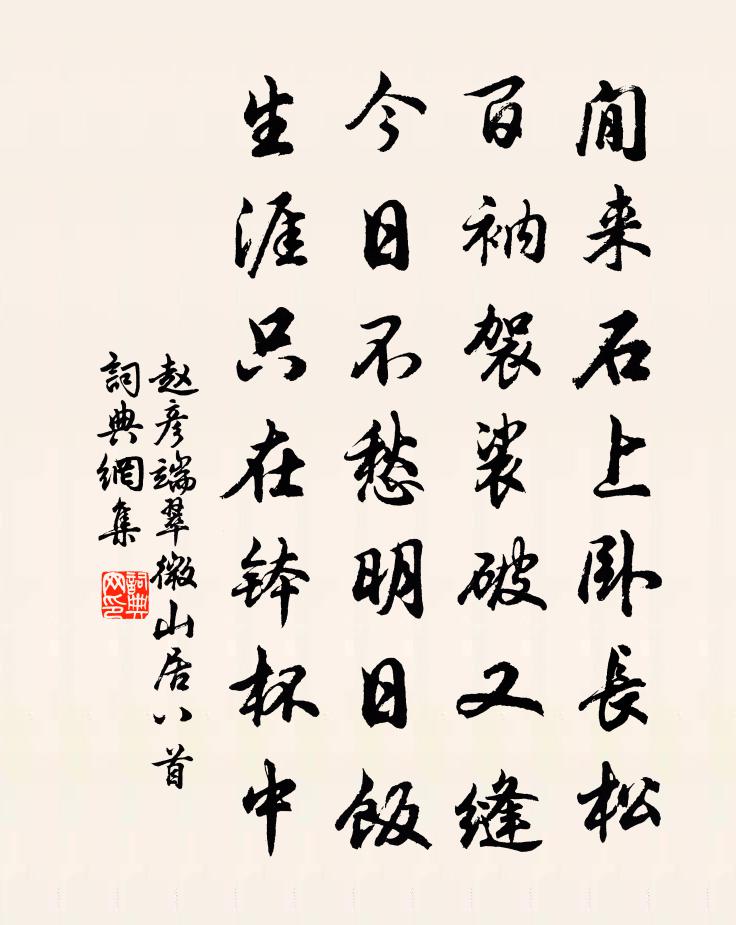 闲来石上卧長松
百衲袈裟破又缝
今日不愁明日饭
生涯只在鉢杯中
赵彦端翠微山居八首
詞典網集
詞典网印